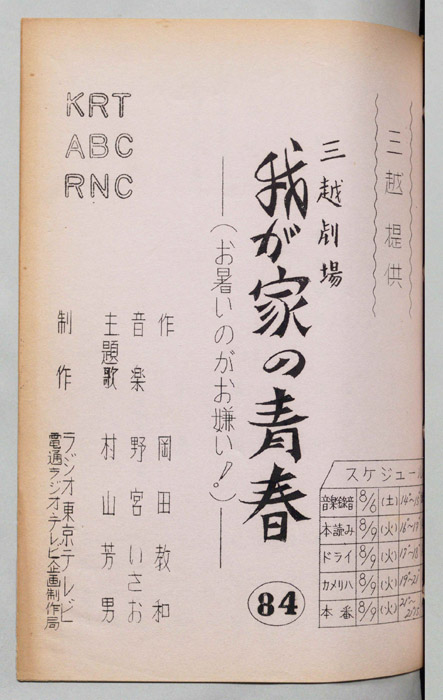 三越提供
三越劇場
我が家の青春
84
―(お暑いのがお嫌い!)―
作 岡田教和
音楽 野宮いさお
主題歌 村山芳男
制作 ラジオ東京テレビ
電通ラジオ・テレビ企画制作局
KRT
ABC
RNC
スケジュール
音楽録音 8/6 (土)
本読み 8/9 (火)
ドライ 8/9 (火)
カメリハ 8/9 (火)
本番 8/9 (火)